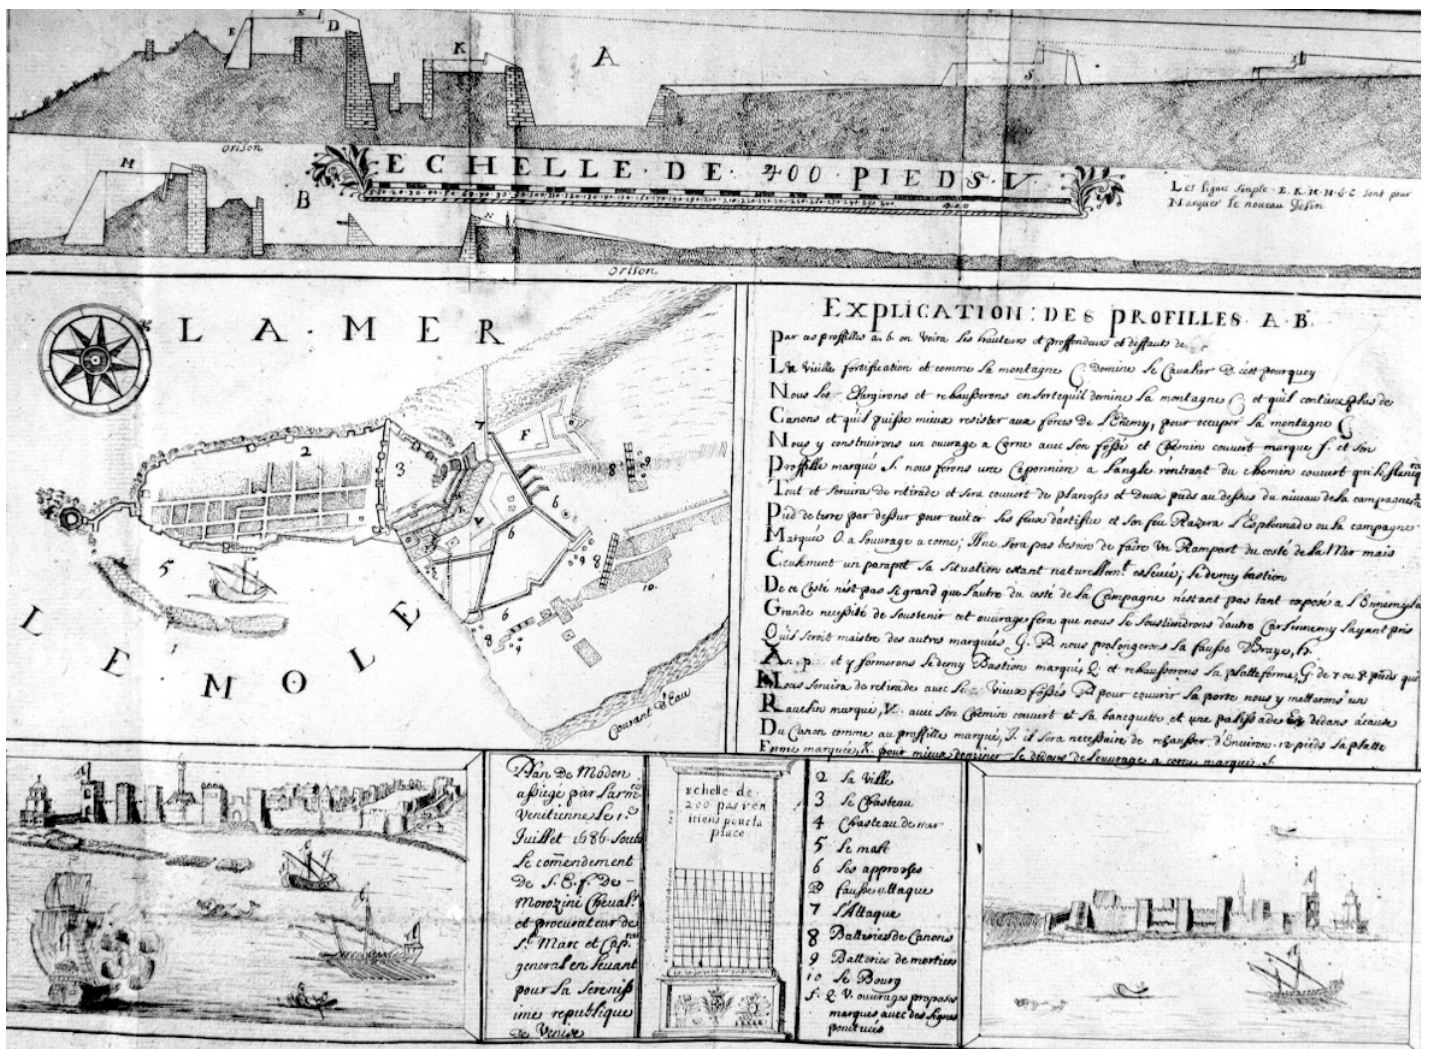 E
D
K
A
S
orison
M
ECHELLE · DE · 400 · PIEDS · V ·
400
B
N
Les lignes simple · E · K · M · N · & C sont pour
Marquer le nouveau desin
orison
LA · MER
2
3
F
8
9
6
V
6
8
9
10
5
6
8
9
LE · MOLE
Courant d'Eau
EXPLICATION : DES PROFILLES · A · B ·
Par ces proffilles a. b. on voira les hauteurs et proffondeurs et deffauts de
La vieille fortification et comme la montagne C. domine le Cavalier D. c'est pourquoy
Nous les Elargirons et rehausserons en sorte qu'il domine la montagne C; et qu'il contiene plus de
Canons et qu'il puisse mieux resister aux forces de l'Enemy, pour occuper la montagne C.
Nous y construirons un ouvrage a Corne avec son fossé et Chemin couvert marque f. et son
Proffille marqué S. nous ferons une Caponnion a l'angle rentrant du chemin couvert qui le
Tout et servira de retirade et sera couvert de planches et Deux pieds au dessus du niveau de la campagne
Pied de terre par dessur pour eviter les feux d'artifice et son feu Razera l'Esplonnade ou la campagne
Marqué O. a l'ouvrage a corne; Il ne sera pas besoin de faire Un Rampart du costé de la Mer mais
Ceulement un parapet sa situation estant naturellem.t eslevée; le demy bastion
De ce Costé n'est pas si grand que l'autre du costé de la Campagne n'estant pas tant exposé a l'Ennemy la
Grande necessité de soustenir cet ouvrage fera que nous le soustiendrons d'autre Car l'ennemy l'ayant pris
Qui seroit maistre des autres marqués G. P. nous prolongerons la fausse Braye, h.
An. p. et y formerons le demy Bastion marqué, Q. et rehausserons la platteforme, G. de 7 ou 8 pieds qui
Nous servira de retirade avec le Vieux fossés P. pour couvrir la porte nous y metterons un
Ravelin marqué, V. avec son Chemin couvert et sa bancquette et une palissade dedans a cause
Du Canon comme au proffille marqué, J. il sera necessaire de rehausser d'Environ 12 pieds la platte
Forme marquée, K. pour mieux dominer le dedans de l'ouvrage a corne marqué f.
Plan De Modon
assiegé par l'arm.
Venitienne le 1.
Juillet 1686. soubs
Le comendement
De S. E. f. De
Morozini Cheval.
et procurateur de
S.t Marc et Cap.
general en levant
pour la sereniss
ime republique
de Venise
Echelle de
200 pas ven
itiens pour la
place
2 La Ville
3 Le Chasteau
4 Chasteau de mer
5 Le mole
6 Les approches
D fausse attaque
7 l'Attaque
8 Batteries de Canons
9 Batteries de mortiers
10 Le Bourg
f. Q. V. ouvrages proposes
marqués avec des lignes
ponctuées